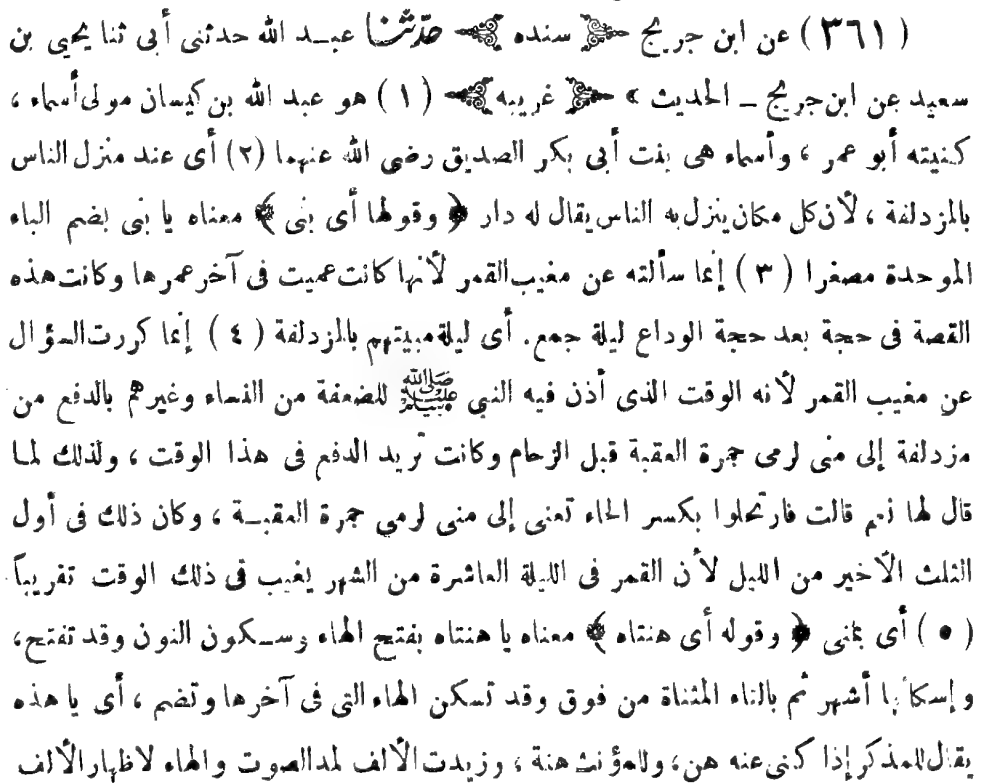 (٣٦١) عن ابن جريج ﴿ سنده ﴾ حدّثنا عبد الله حدثنى أبى ثنا يحيى بن
سعيد عن ابن جريج ــ الحديث » ﴿ غريبه ﴾ (١) هو عبد الله بن كيسان مولى أسماء ،
كنيته أبو عمر ، وأسماء هى بنت أبى بكر الصديق رضى الله عنهما (٢) أى عند منزل الناس
بالمزدلفة ، لأن كل مكان ينزل به الناس يقال له دار ﴿ وقولها أى بنى ﴾ معناه يا بنى بضم الباء
الموحدة مصغرا (٣) إنما سألته عن مغيب القمر لأنها كانت عميت فى آخر عمرها وكانت هذه
القصة فى حجة بعد حجة الوداع ليلة جمع. أى ليلة مبيتهم بالمزدلفة (٤) إنما كررت السؤال
عن مغيب القمر لأنه الوقت الذى أذن فيه النبى ﷺ للضعفة من النساء وغيرهم بالدفع من
مزدلفة إلى منى لرمى جمرة العقبة قبل الزحام وكانت تريد الدفع فى هذا الوقت ، ولذلك لما
قال لها نعم قالت فارتحلوا بكسر الحاء تعنى إلى منى لرمى جمرة العقبــة ، وكان ذلك فى أول
الثلث الأخير من الليل لأن القمر فى الليلة العاشرة من الشهر يغيب فى ذلك الوقت تقريباً
(٥) أى بمنى ﴿ وقوله أى هنتاه ﴾ معناه يا هنتاه بفتح الهاء وسـكون النون وقد تفتح،
وإسكانها أشهر ثم بالتاء المثناة من فوق وقد تسكن الهاء التى فى آخرها وتضم ، أى يا هذه
يقال للمذكر إذا كنى عنه هن، وللمؤنث هنة ، وزيدت الألف لمد الصوت والهاء لاظهار الألف